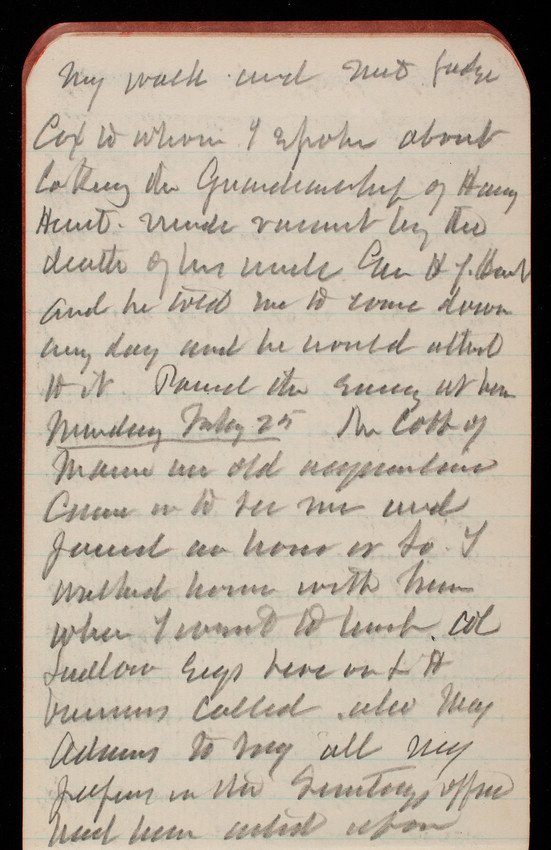 my walk and met Judge
Cox to whom I spoke about
taking the Guardianship of Harry
Hunt. made vacant by the
death of his uncle Gen H J. Hunt
and he told me to come down
any day and he would attend
to it Passed the evening at home
Monday Feby 25 Mr Cobb of
Maine an old acquaintance
Came in to see me and
passed an hour or so. I
walked home with him
when I went to lunch. Col
Ludlow Engs here on L H
business called. also May
Adams to say all my
papers in the Secretarys office
had been acted upon